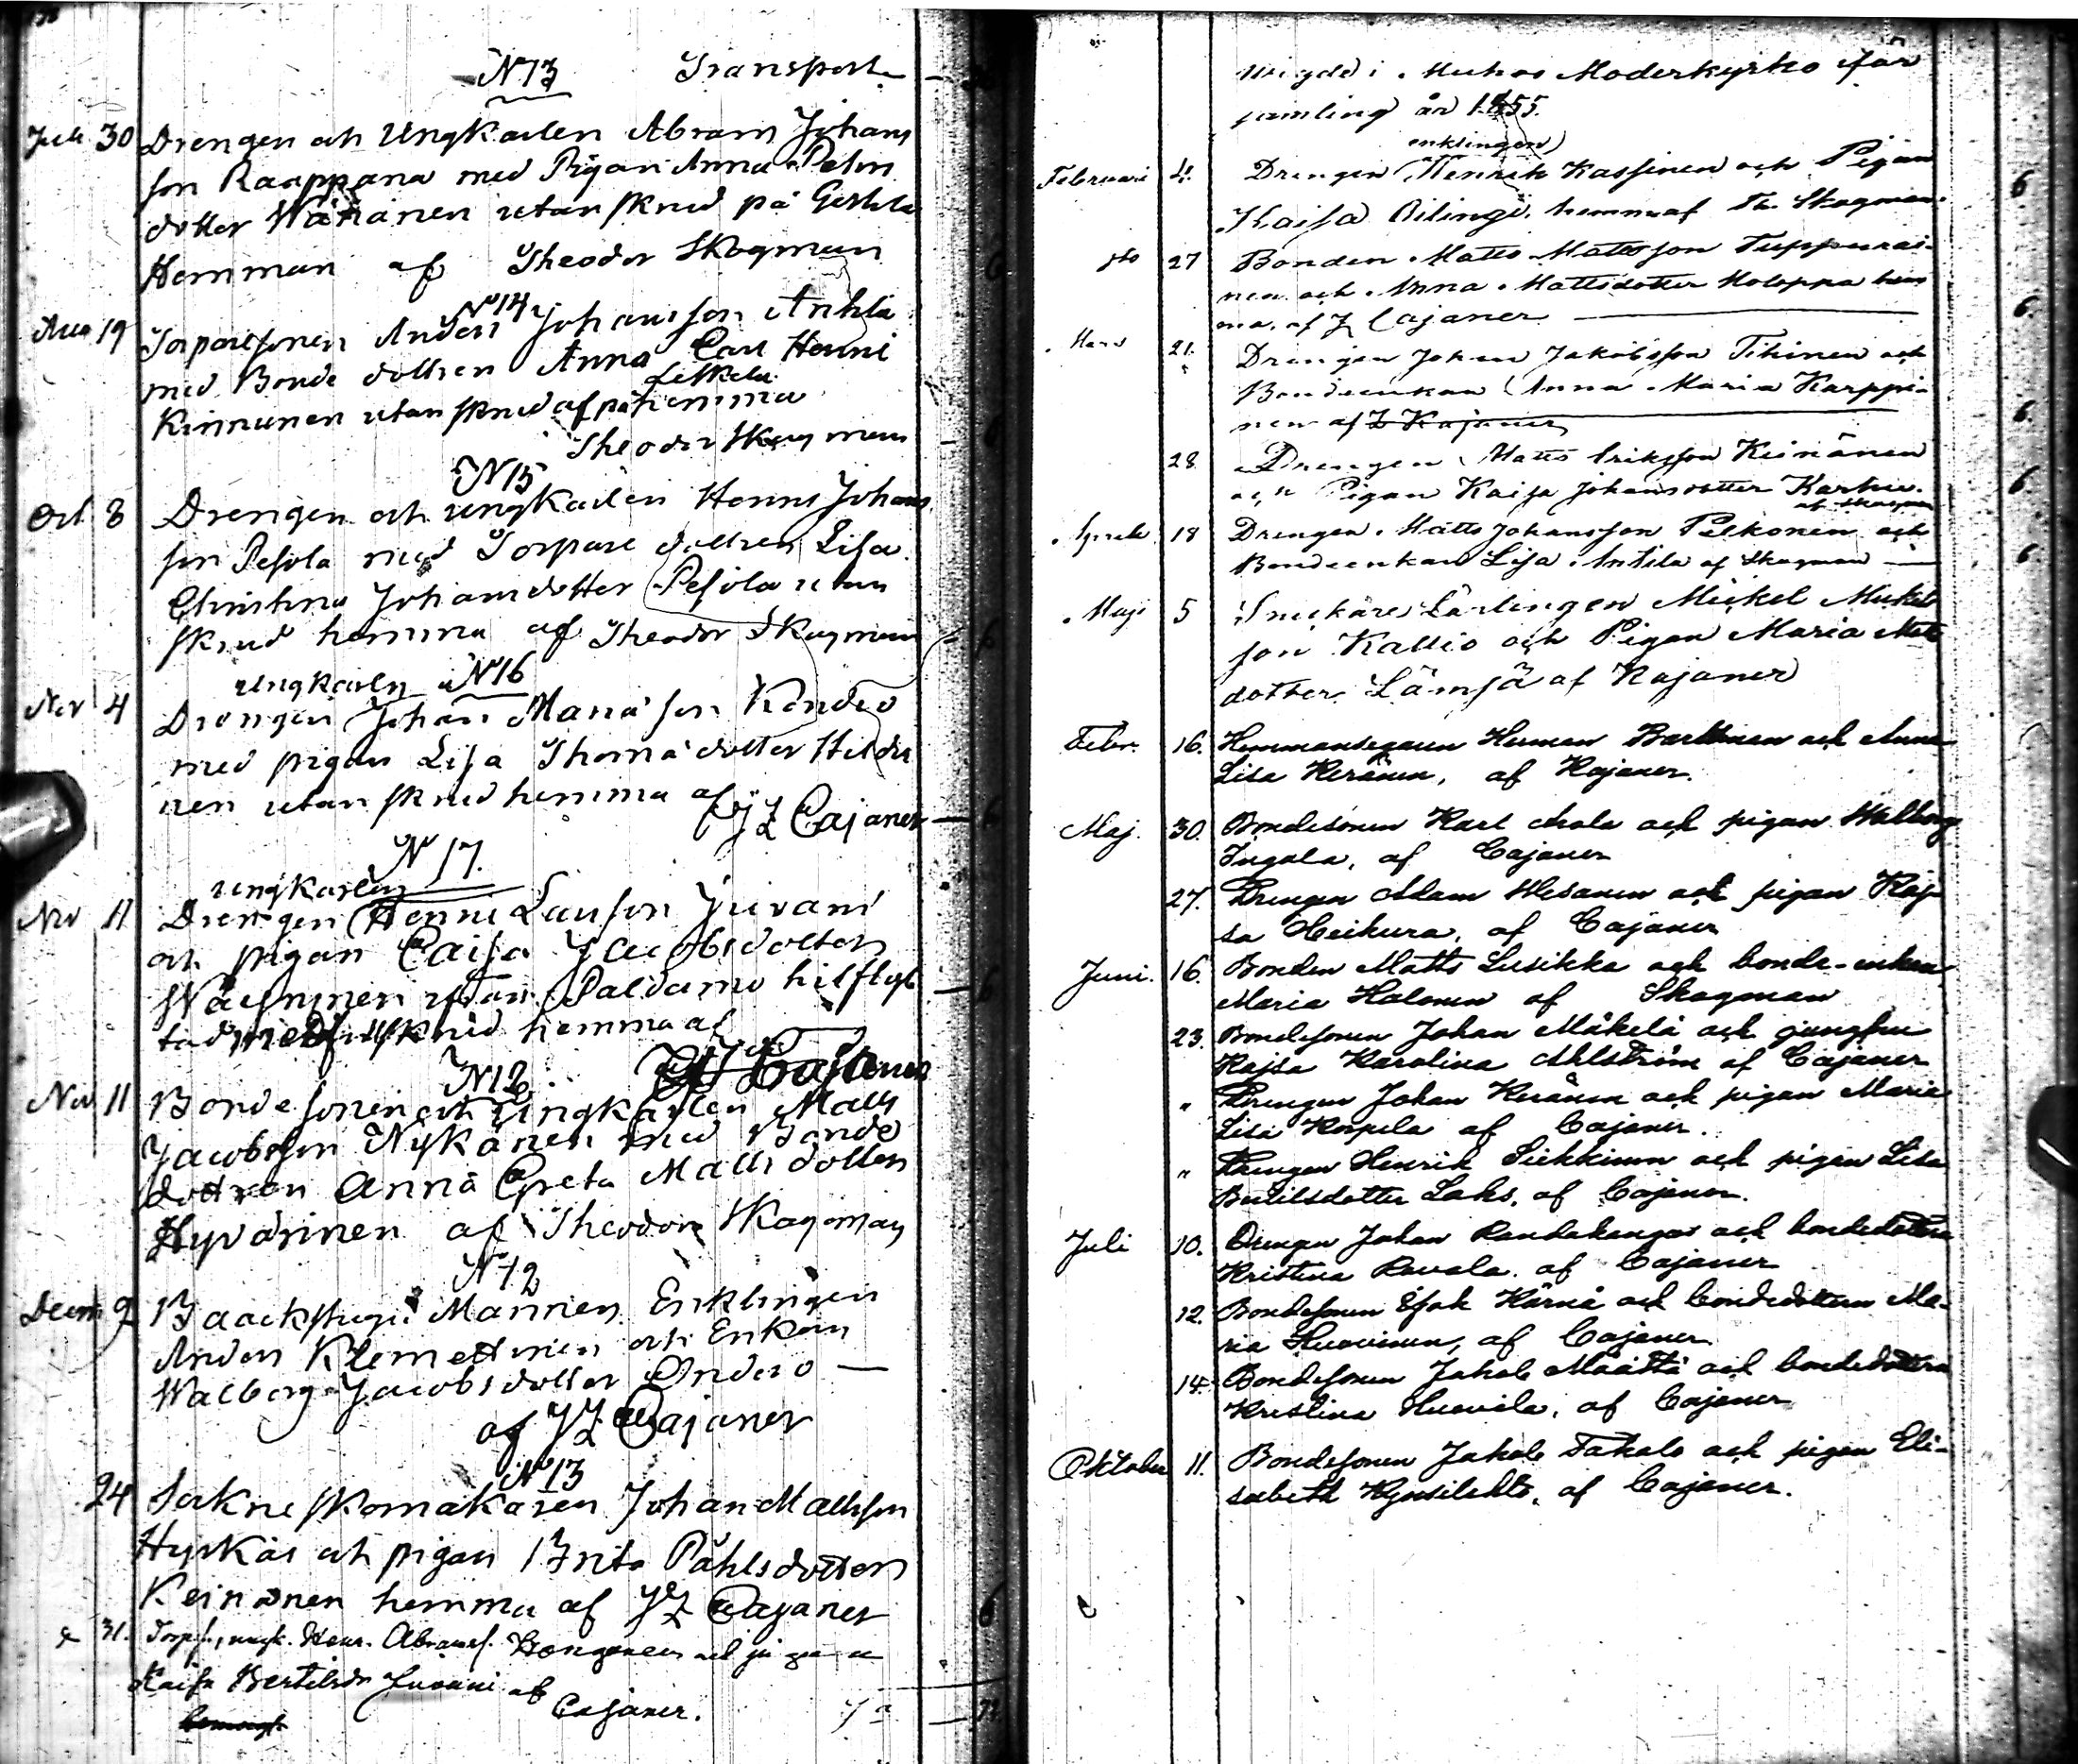 N13 Transport
Juli 30 Drengen och Ungkarlen Abram Johans
son Raappana med Pigan Anna Pehrs
dotter Wänänen utan skrud på
Hemman af Theodor Skogman 6
N14
Aug 19 Torparesonen Anders Johansson Anttila
med Bonde dottren Anna Carl Henri
Kinnunen utan skrud af på hemma
Theodor Skogman 6
N15
Oct 8 Drengen och ungkarlen Henric Johans
son Pesola med Torpare dottren Lisa
Christina Johansdotter Pesola utan
skrud hemma af Theodor Skogman 6
ungkarln N16
Nov 4 Drengen Johan Manasson Kondio
med pigan Lisa Thomadotter Hildu
nen utan skrud hemma af
J Z Cajaner — 6
N 17.
ungkarlen
Nov 11 Drengen Henric Larsson Juvani
och pigan Caisa Jacobsdotter
Wäyrynen ifrån Paldamo hitflyt
tad med skrud hemma af — 6
N12 Cajaner
Nov 11 Bondesonen och Ungkarlen Matts
Jacobsson Nykänen med Bonde
dottren Anna Greta Matts dotter
Hyvärinen af Theodor Skogman
N12
Decem 9 Baackstugu Mannen Enklingen
Anders Klemettinen och Enkan
Walborg Jacobsdotter Ondero —
af J Z Cajaner
N13
24 Sockne skomakaren Johan Mattsson
Hyrkäs och pigan Brita Påhlsdotter
Keinänen hemma af J Z Cajaner 6
31. Torps., ungk. Henr. Abrams. Kongainen och pigan
Kaisa Bertilsdr Juvani af
Cajaner.
wigde i Muhos Moderkyrko för
samling år 1855.
enklingen
Februari 4. Drengen Henrik Kassinen och Pigan
Kaisa hemma af Th. Skogman. 6
dto 27 Bonden Matts Mattsson Tuppurai-
nen och Anna Mattsdotter Holappa hem
ma. af J Z Cajaner — 6.
Mars 21. Drengen Johan Jakobsson Tihinen och
Bondeenkan Anna Maria Karppi-
nen af Z Kajaner 6.
28 Drengen Matts Eriksson Keinänen
och Pigan Kaisa Johansdotter Karhu.
af Skogman 6.
Aprill 18 Drengen Matts Johansson Pekonen och
Bondeenkan Lisa Antila af Skogman — 6.
Maji 5 Snickare Lärlingen Mickel Mickels
son Kallio och Pigan Maria Matts
dotter Lämsä af Kajaner
Febr. 16. Hemmansegaren Herman Barkman och Anna
Lisa Keränen, af Kajaner.
Maj. 30. Bondesonen Karl Ahola och pigan Walborg
Ingala, af Cajaner
27. Drengen Adam Wesanen och pigan Kaj-
sa Heikura, af Cajaner
Juni. 16. Bonden Matts Lusikka och bonde-enkan
Maria Halonen af Skogman
23. Bondesonen Johan Mäkelä och jungfru
Kajsa Karolina Ahlström af Cajaner
" Drengen Johan Keränen och pigan Maria
Lisa Korpela af Cajaner.
" Drengen Henrik Siekkinen och pigan Lisa
Bertilsdotter Laks, af Cajaner.
Juli 10. Drengen Johan Randakangas och bondedottern
Kristina Ravala. af Cajaner
12. Bondesonen Esak Kärnä och bondedottern Ma-
ria Huovinen, af Cajaner
14. Bondesonen Jakob Määttä och bondedottern
Kristina Huovila, af Cajaner
Oktober 11. Bondesonen Jakob Takalo och pigan Eli-
sabeth Kynsilehto, af Cajaner.